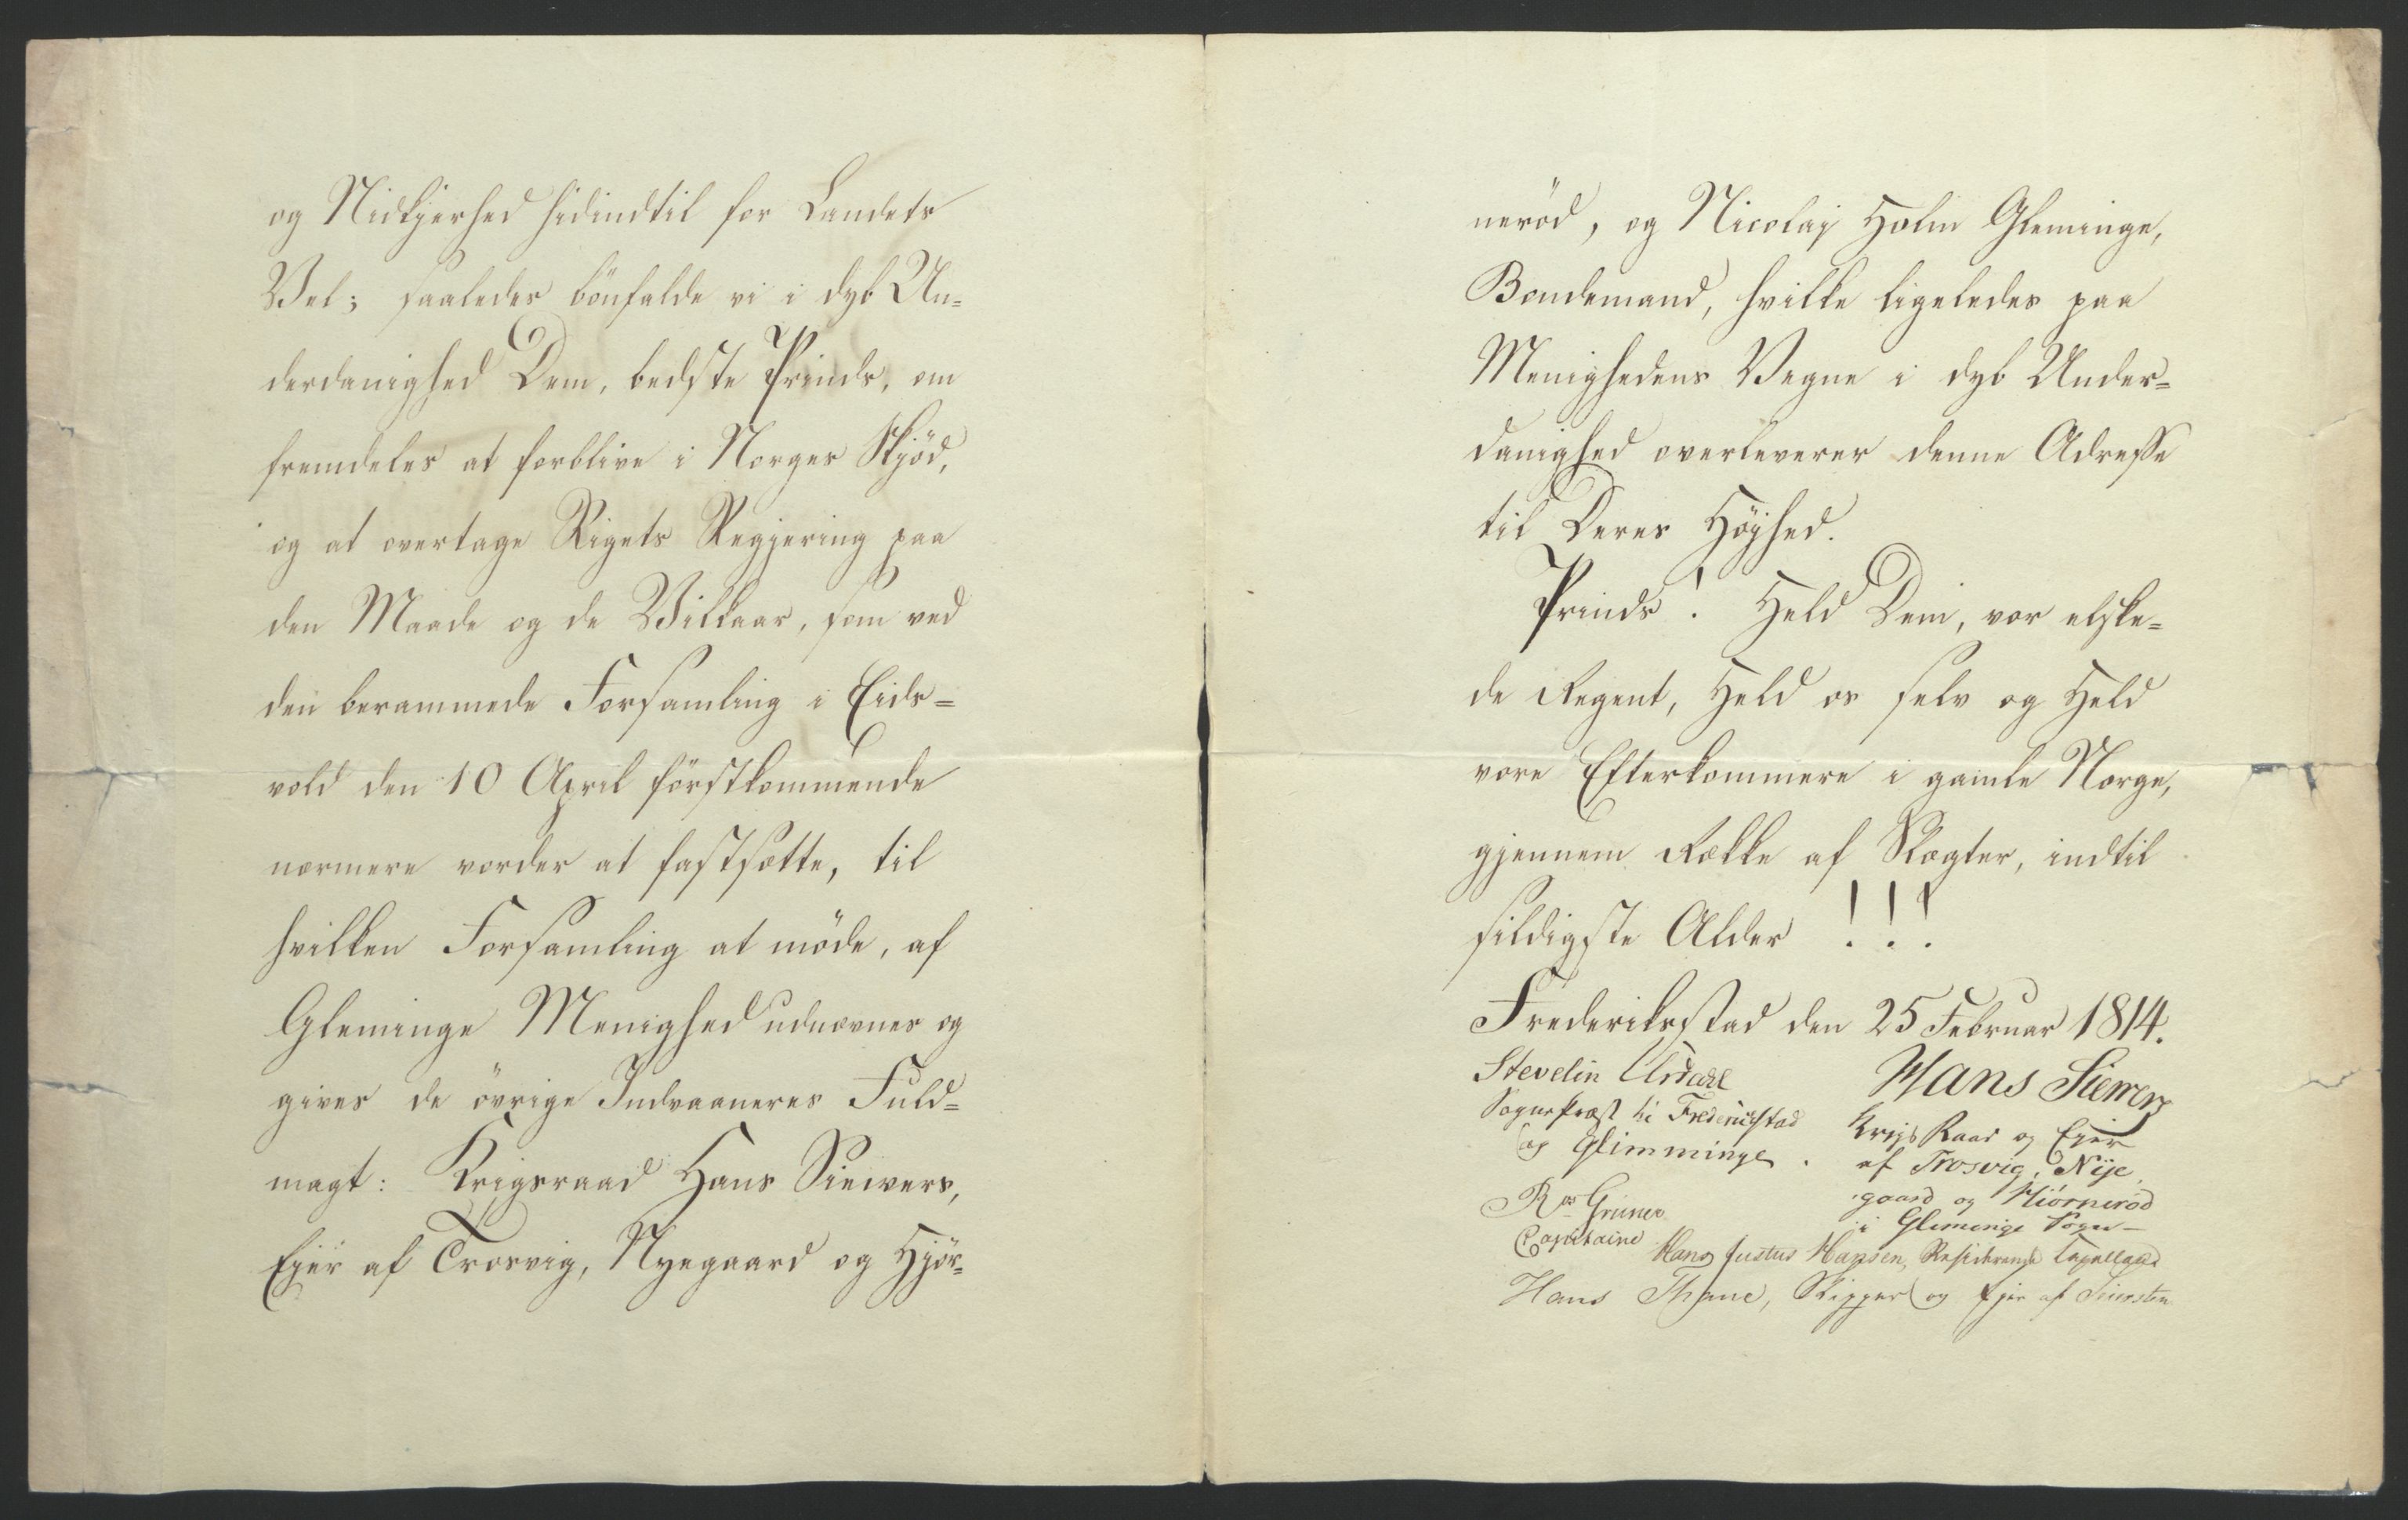 og Nidkjerhed hidindtil for Landets
Vel; saaledes bönfalde vi i dyb Un=
derdanighed Dem, bedste Prinds, om
fremdeles at forblive i Norges Skjöd,
og at overtage Rigets Regjering paa
den Maade og de Vilkaar, som ved
den berammede Forsamling i Eids=
vold den 10 April förstkommende
nærmere vorder at fastsætte, til
hvilken Forsamling at möde, af
Gleminge Menighed udnævnes og
gives de övrige Indvaaneres Fuld=
magt: Krigsraad Hans Siewers,
Ejer af Trosvig, Nyegaard og Hjör=
neröd, og Nicolaj Holm Gleminge,
Bondemand, hvilke ligeledes paa
Menighedens Vegne i dyb Under=
danighed overleverer denne Adresse
til Deres Höjhed.
Prinds! Held Dem, vor elske=
de Regent, Held os selv og Held
vore Efterkommere i gamle Norge,
gjennem Række af Slægter, indtil
sildigste Alder !!!
Frederiksstad den 25 Februar 1814.
Stevelin Urdahl
Sognepræst til Fredericstad
og Glimminge.
Hans Siewers
Krigs Raad og Ejer
af Trosvig, Nije
gaard og Hiörneröd
i Gleminge Sogn
Grüner
Capitaine
Hans Justus Hansen, Residerende Capellan
Hans Thane, Skipper og Ejer af